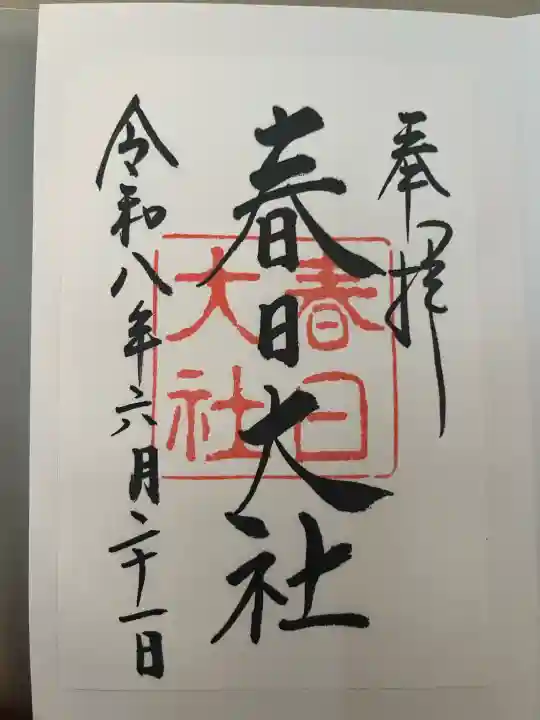 奉拝
春日大社
春日
大社
令和八年六月二十一日